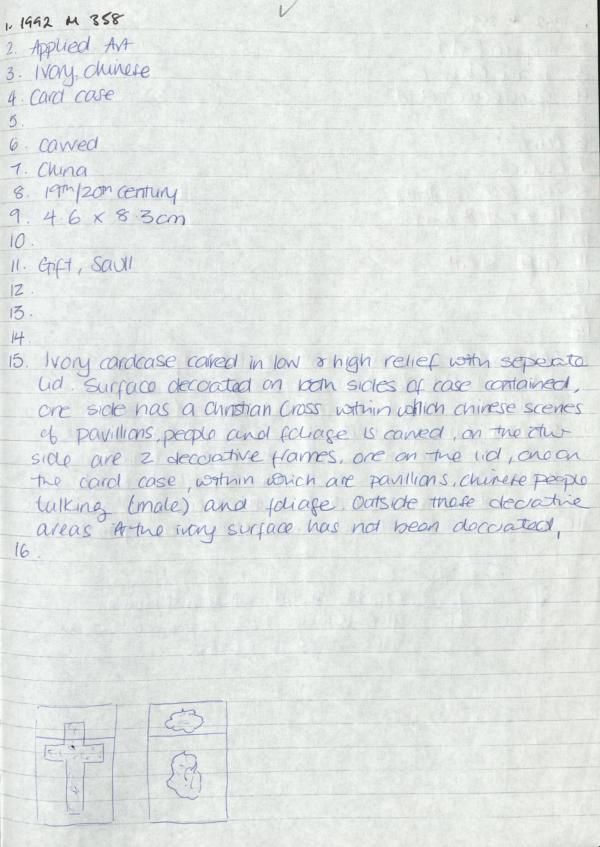 1. 1992 M 358
2. Applied Art
3. Ivory, Chinese
4. Card case
5.
6. Carved
7. China
8. 19th/20th century
9. 4.6 x 8.3cm
10.
11. Gift, Saull
12.
13.
14.
15. Ivory cardcase carved in low & high relief with seperate
lid. Surface decorated on both sides of case contained,
one side has a Christian Cross within which chinese scenes
of pavillions, people and foliage is carved, on the other
side are 2 decorative frames, one on the lid, one on
the card case, within which are pavillions, chinese people
talking (male) and foliage. Outside these decorative
areas the ivory surface has not been decorated,
16.